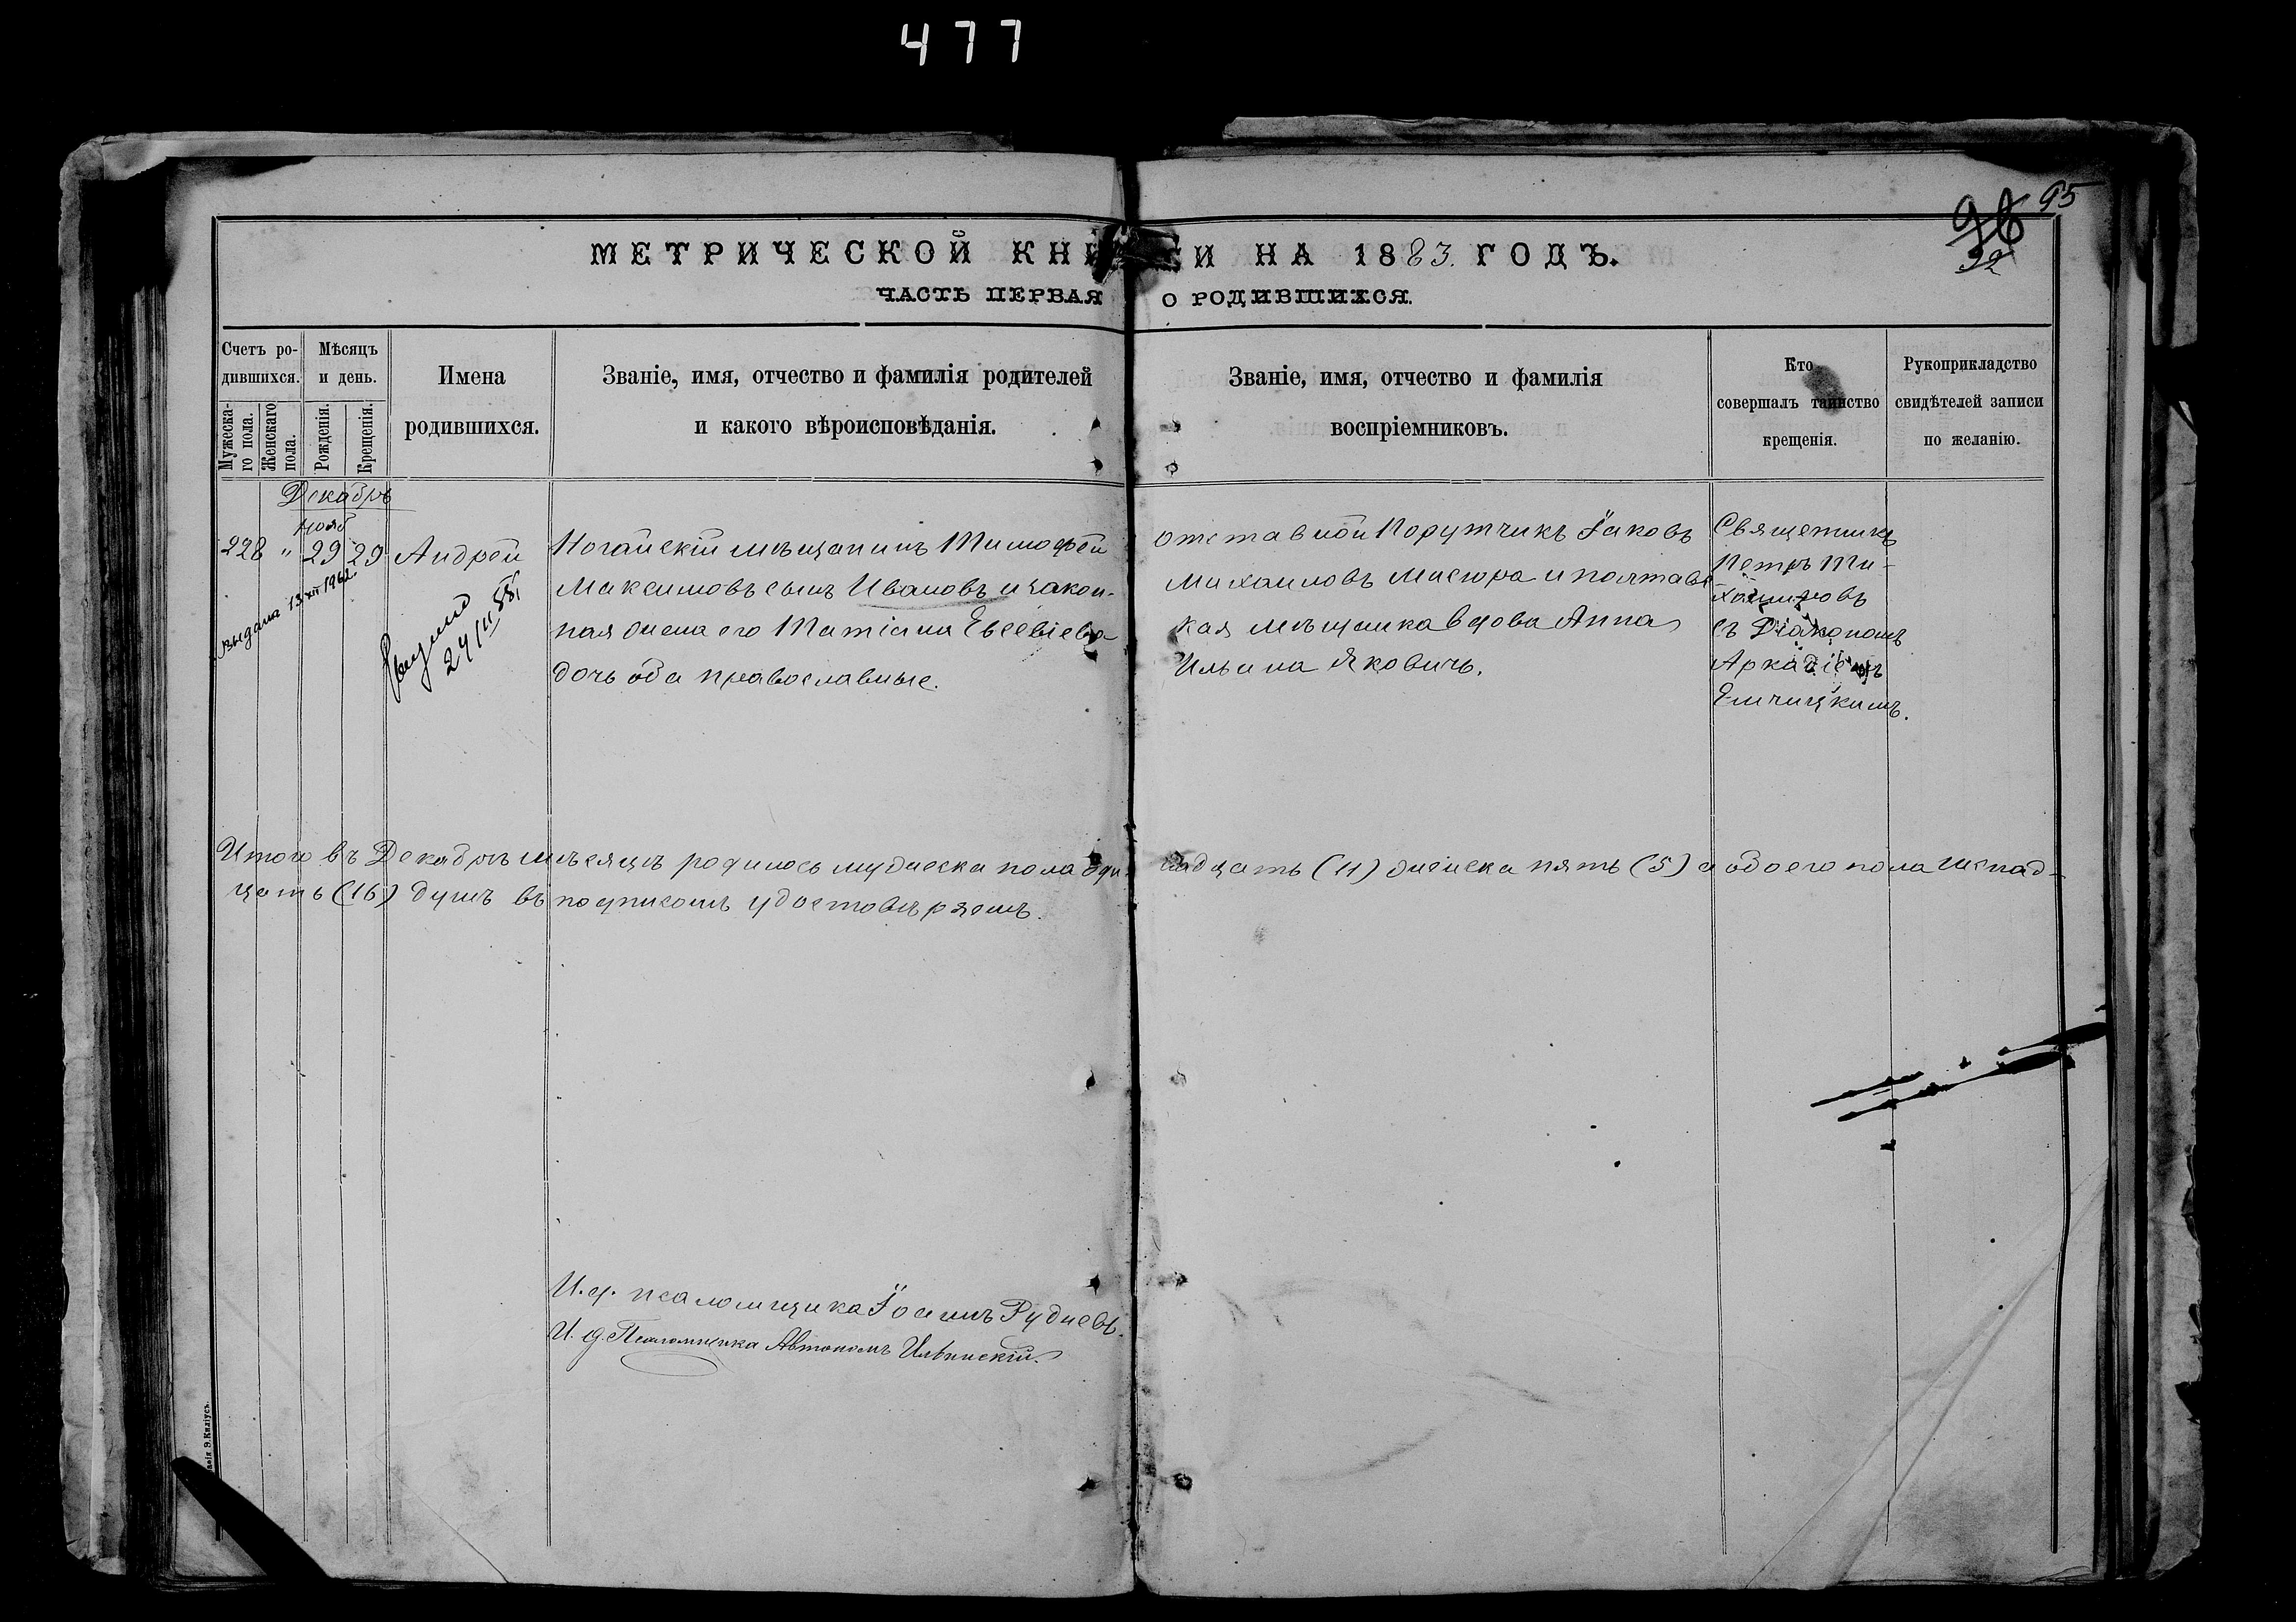 477
95
96
92
МЕТРИЧЕСКОЙ КНИГИ НА 1883. ГОДЪ.
ЧАСТЬ ПЕРВАЯ О РОДИВШИХСЯ.
Счетъ ро-
дившихся.
Мужеска-
го пола.
Женскаго
пола.
Мѣсяцъ
и день.
Рожденія.
Крещенія.
Имена
родившихся.
Званіе, имя, отчество и фамилія родителей
и какого вѣроисповѣданія.
Званіе, имя, отчество и фамилія
воспріемниковъ.
Кто
совершалъ таинство
крещенія.
Рукоприкладство
свидѣтелей записи
по желанію.
Декабрь
Нояб
228 " 29 29 Андрей
выдана 13 XII 1962
24/II 55
Ногайскій мѣщанинъ Тимофей
Максимовъ сынъ Ивановъ и закон-
ная жена его Татіана Евсевіева
дочь оба православные.
Отставной Порутчикъ Іаковъ
Михаиловъ Мисюра и полтавс-
кая мѣщанка вдова Анна
Ильина Яковичъ.
Священникъ
Петръ Ти-
съ Діакономъ
Аркадіемъ
Итого въ Декабрѣ мѣсяцѣ родилось мужеска пола оди-надцать (11) женска пять (5) а обоего пола шестнад-
цать (16) душъ въ подписомъ удостовѣряемъ.
И. д. псаломщика Іоаннъ Рудневъ.
И. д. Псаломщика Автономъ Ильинскій.